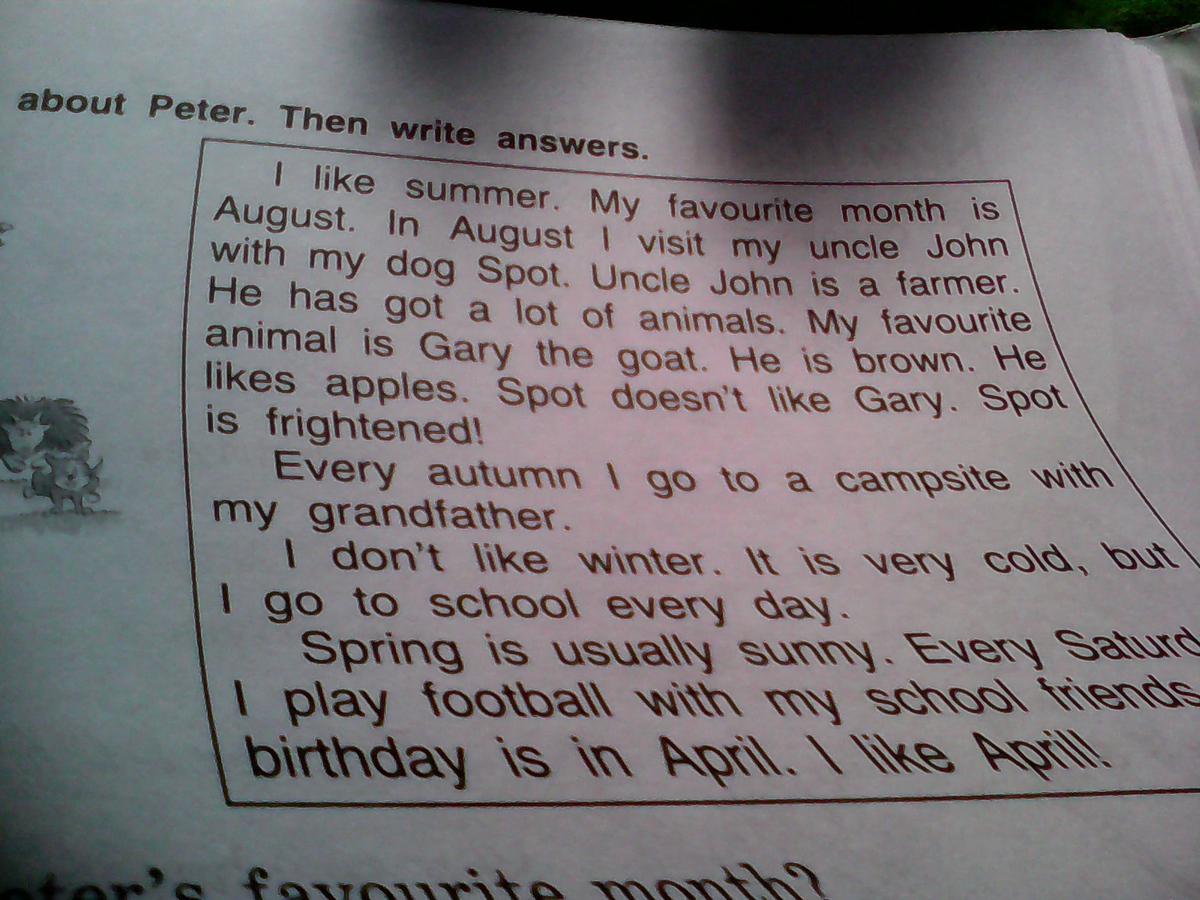 about Peter. Then write answers.
I like summer. My favourite month is
August. In August I visit my uncle John
with my dog Spot. Uncle John is a farmer.
He has got a lot of animals. My favourite
animal is Gary the goat. He is brown. He
likes apples. Spot doesn't like Gary. Spot
is frightened!
Every autumn I go to a campsite with
my grandfather.
I don't like winter. It is very cold, but
I go to school every day.
Spring is usually sunny. Every Saturd
I play football with my school friends
birthday is in April. I like April!
eter's favourite month?